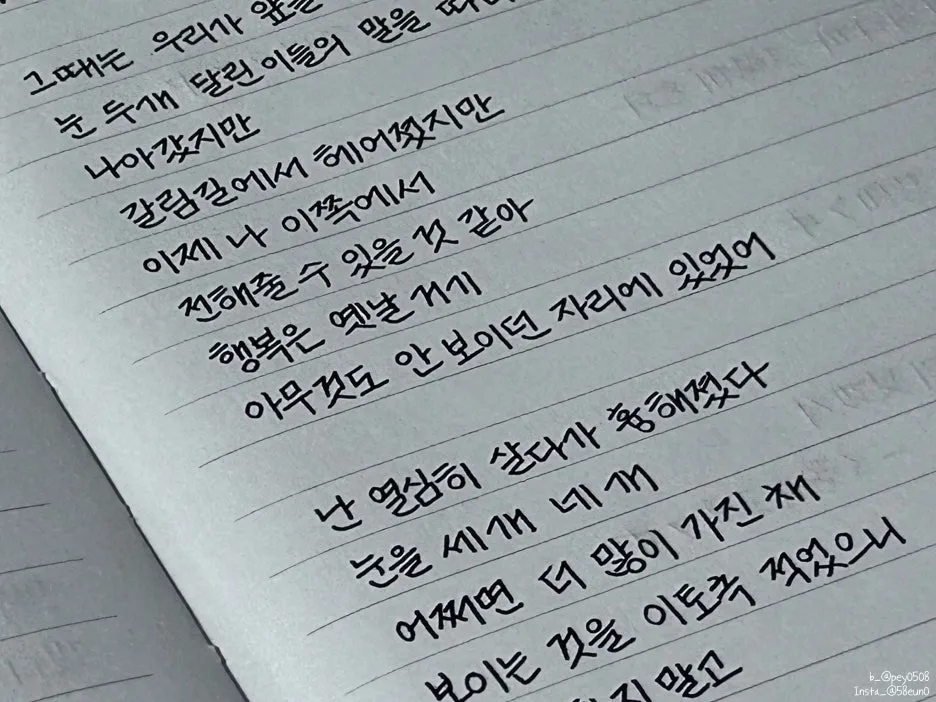 그때는 우리가 앞을
눈 두개 달린 이들의 말을
나아갔지만
갈림길에서 헤어졌지만
이제 나 이쪽에서
전해줄 수 있을 것 같아
행복은 옛날 거기
아무것도 안 보이던 자리에 있었어
난 열심히 살다가 흉해졌다
눈을 세 개 네 개
어쩌면 더 많이 가진 채
보이는 것을 이토록 적었으니
말고
b_@pey0508
Insta_@58eun0